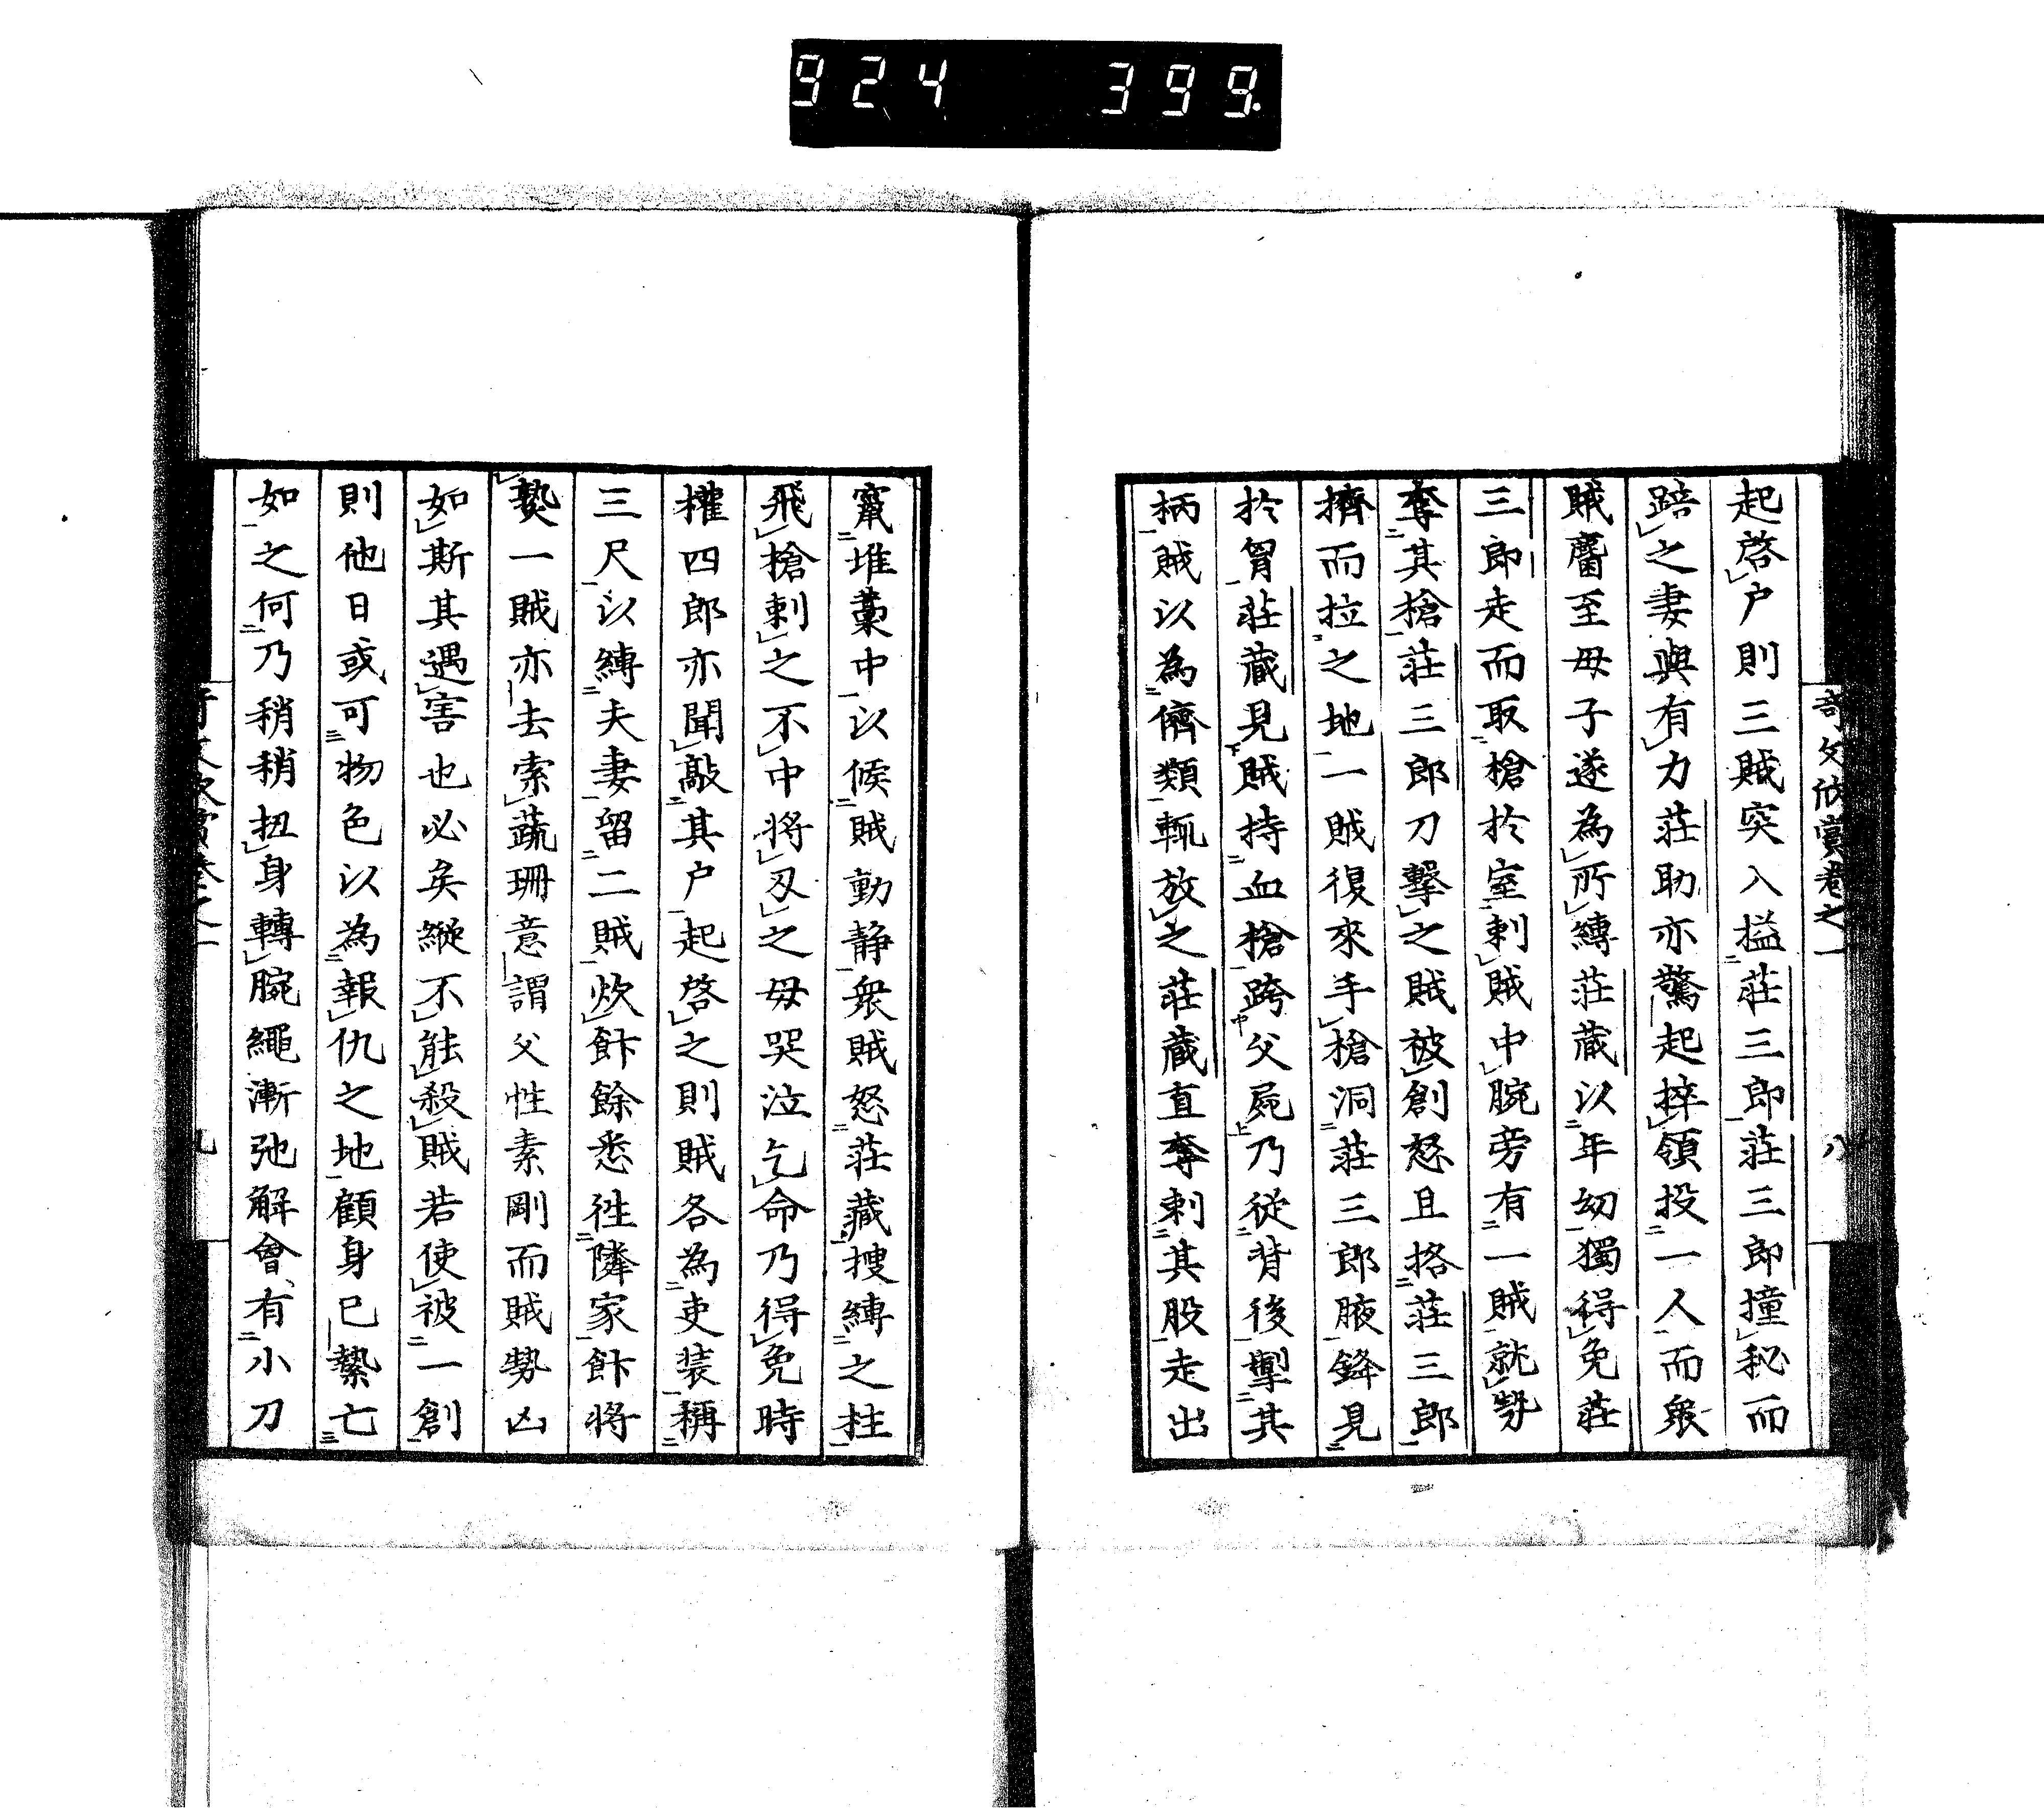 924 399
奇文欣賞卷之一 八
起啓戶則三賊突入搤莊三郎莊三郎撞秘而
踣之妻與有力莊助亦驚起捽領投一人而衆
賊麕至母子遂為所縛莊蔵以年幼獨得免莊
三郎走而取槍於室刺賊中腕旁有一賊就勢
奪其槍莊三郎刀擊之賊被創怒且挌莊三郎
擠而拉之地一賊復來手槍洞莊三郎腋鋒見
於胷莊蔵見賊持血槍跨父屍乃従背後掣其
柄賊以為儕類輒放之莊蔵直奪刺其股走出
竄堆藁中以候賊動静衆賊怒莊藏搜縛之柱
飛槍刺之不中將刃之母哭泣乞命乃得免時
權四郎亦聞敲其戶起啓之則賊各為吏装稱
三尺以縛夫妻留二賊炊飰餘悉徃隣家飰將
𤍠一賊亦去索蔬珊意謂父性素剛而賊勢凶
如斯其遇害也必矣縱不能殺賊若使被一創
則他日或可物色以為報仇之地顧身已縶亡
如之何乃稍稍扭身轉腕繩漸弛解會有小刀
九